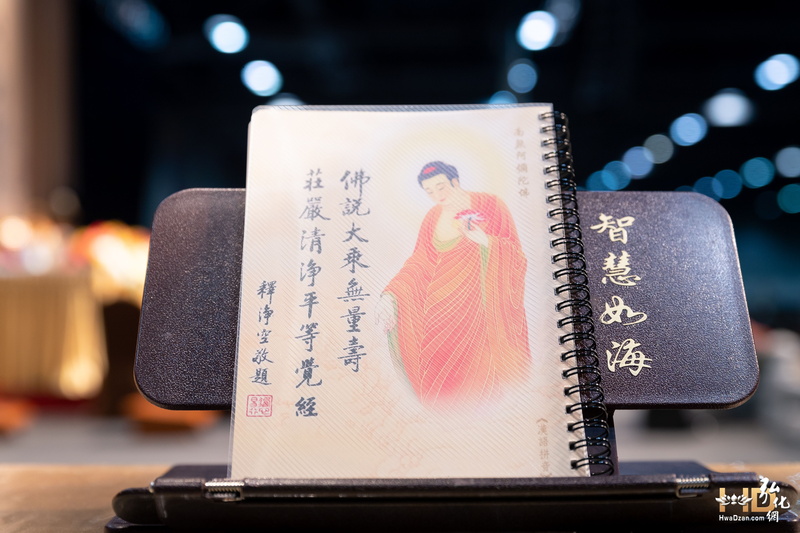 南無阿彌陀佛
佛説大乘無量壽
莊嚴清淨平等覺經
釋淨空敬題
智慧如海
HD
弘化網
HwaDzan.com